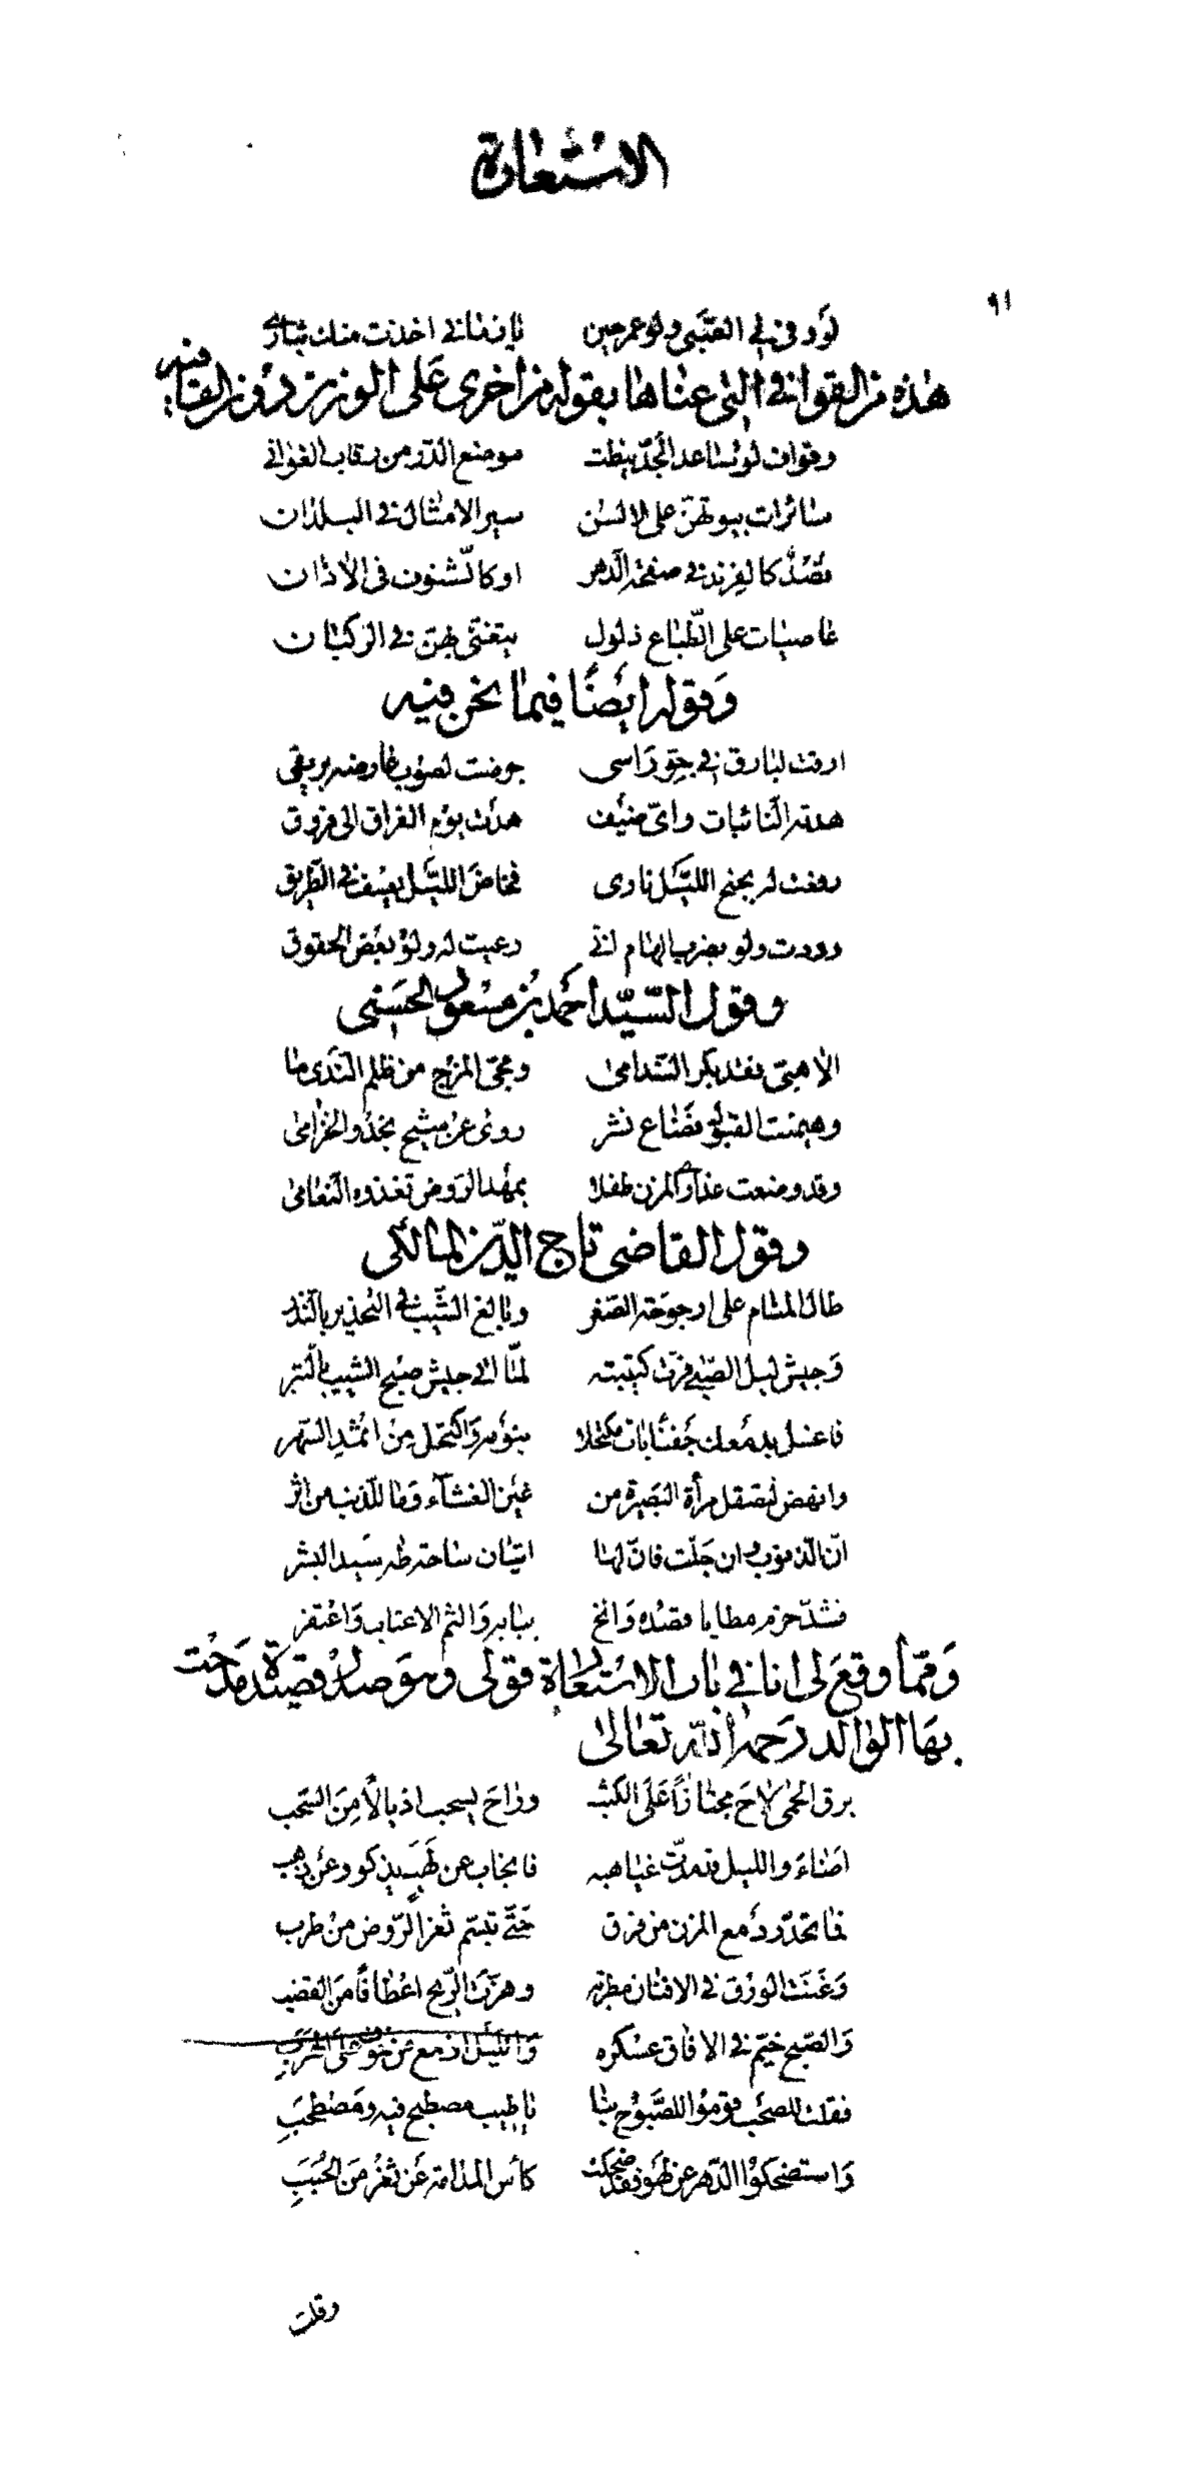 الاستعارة
٩١
لو دو في العتبى ولو عمر حين يا زماني اخذت منك بثار
هذه من القوافي التي عناها بقوله من اخرى على الوزن دون القافيه
وقواف لو ساعد الجد نيطت موضع الدر من رقاب الغواني
سائرات بيوتهن على الالسن سير الامثال في البلدان
كالفرند في صفحة الدهر او كالشنوف في الاذان
عاصيات على الطباع ذلول يتغنى بهن في الركبان
وقوله ايضا فيما نحن فيه
ارقت لبارق في جو راسى حرضت لصوب عارضه بريقي
هدته النائبات واي ضيف هدت يوم الفراق الى فروق
رفعت له بجنح الليل نارى فخاض الليل يعسف في الطريق
ووددت ولو بضرب الهام لفى رعيت له ولو بعض الحقوق
وقول السيد احمد بن مسعود الحسني
الا هبى فقد بكر الندامى ومج المزج من ظلم الندى ما
وهينمت القبول فضاع نشر روى عن شيح نجد والخزامى
وقد وضعت عذارى المزن طفلا بمهد الروض تغذوه النعامى
وقول القاضي تاج الدين المالكي
طال المنام على ارجوحة الصغر وبالغ الشيب في التحذير بالنذر
وجيش ليل الصبى فرت كتيبته لما اتى جيش صبح الشيب بالتبر
فاغسل بدمعك جفنا بات مكتحلا بنومه واكتحل من اثمد السهر
وانهض لصقل مرأة البصيرة من غين الغشاء وما للذنب من اثر
ان الذنوب وان جلت فان لها اتيان ساحة طه سيد البشر
فشد حزم مطايا قصده وانخ ببابه والثم الاعتاب واعتفر
ومما وقع لى انا في باب الاستعارة قولى وهو صدر قصيدة مدحت
بها الوالد رحمه الله تعالى
برق الحمى لاح مجتازا على الكثب وراح يسحب اذيالا من السحب
اضاء والليل قد مدت غياهبه فانجاب عن لهب يذكو وعن ذهب
فما تحدر دمع المزن من فرق حتى تبسم ثغر الروض من طرب
وغنت الورق في الافنان مطربة وهزت الريح اعطافا من القضب
والصبح خيم في الافاق عسكره والليل ازمع من خوف على الهرب
فقلت للصحب قوموا للصبوح بنا يا طيب مصطبح فيه ومصطحب
واستضحكوا الدهر عن لهو فقد ضحكت كأس المدامة عن ثغر من الحبب
وقلت